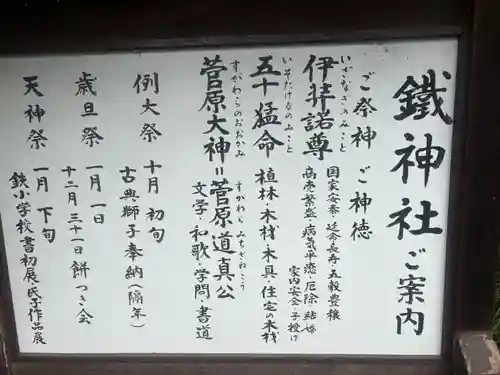 鐵神社ご案内
ご祭神 ご神徳
伊弉諾尊
いざなぎのみこと
国家安泰・延命長寿・五穀豊穣
商売繁盛・病気平癒・厄除・結婚
家内安全・子授け
五十猛命
いそたけるのみこと
植林・木材・木具・住宅の木材
菅原大神=菅原道真公
すがわらのおおかみ
すがわらみちざねこう
文学・和歌・学問・書道
例大祭 十月 初旬
古典獅子奉納(隔年)
歳旦祭 一月一日
十二月三十一日餅つき会
天神祭 一月 下旬
鉄小学校書初展・氏子作品展